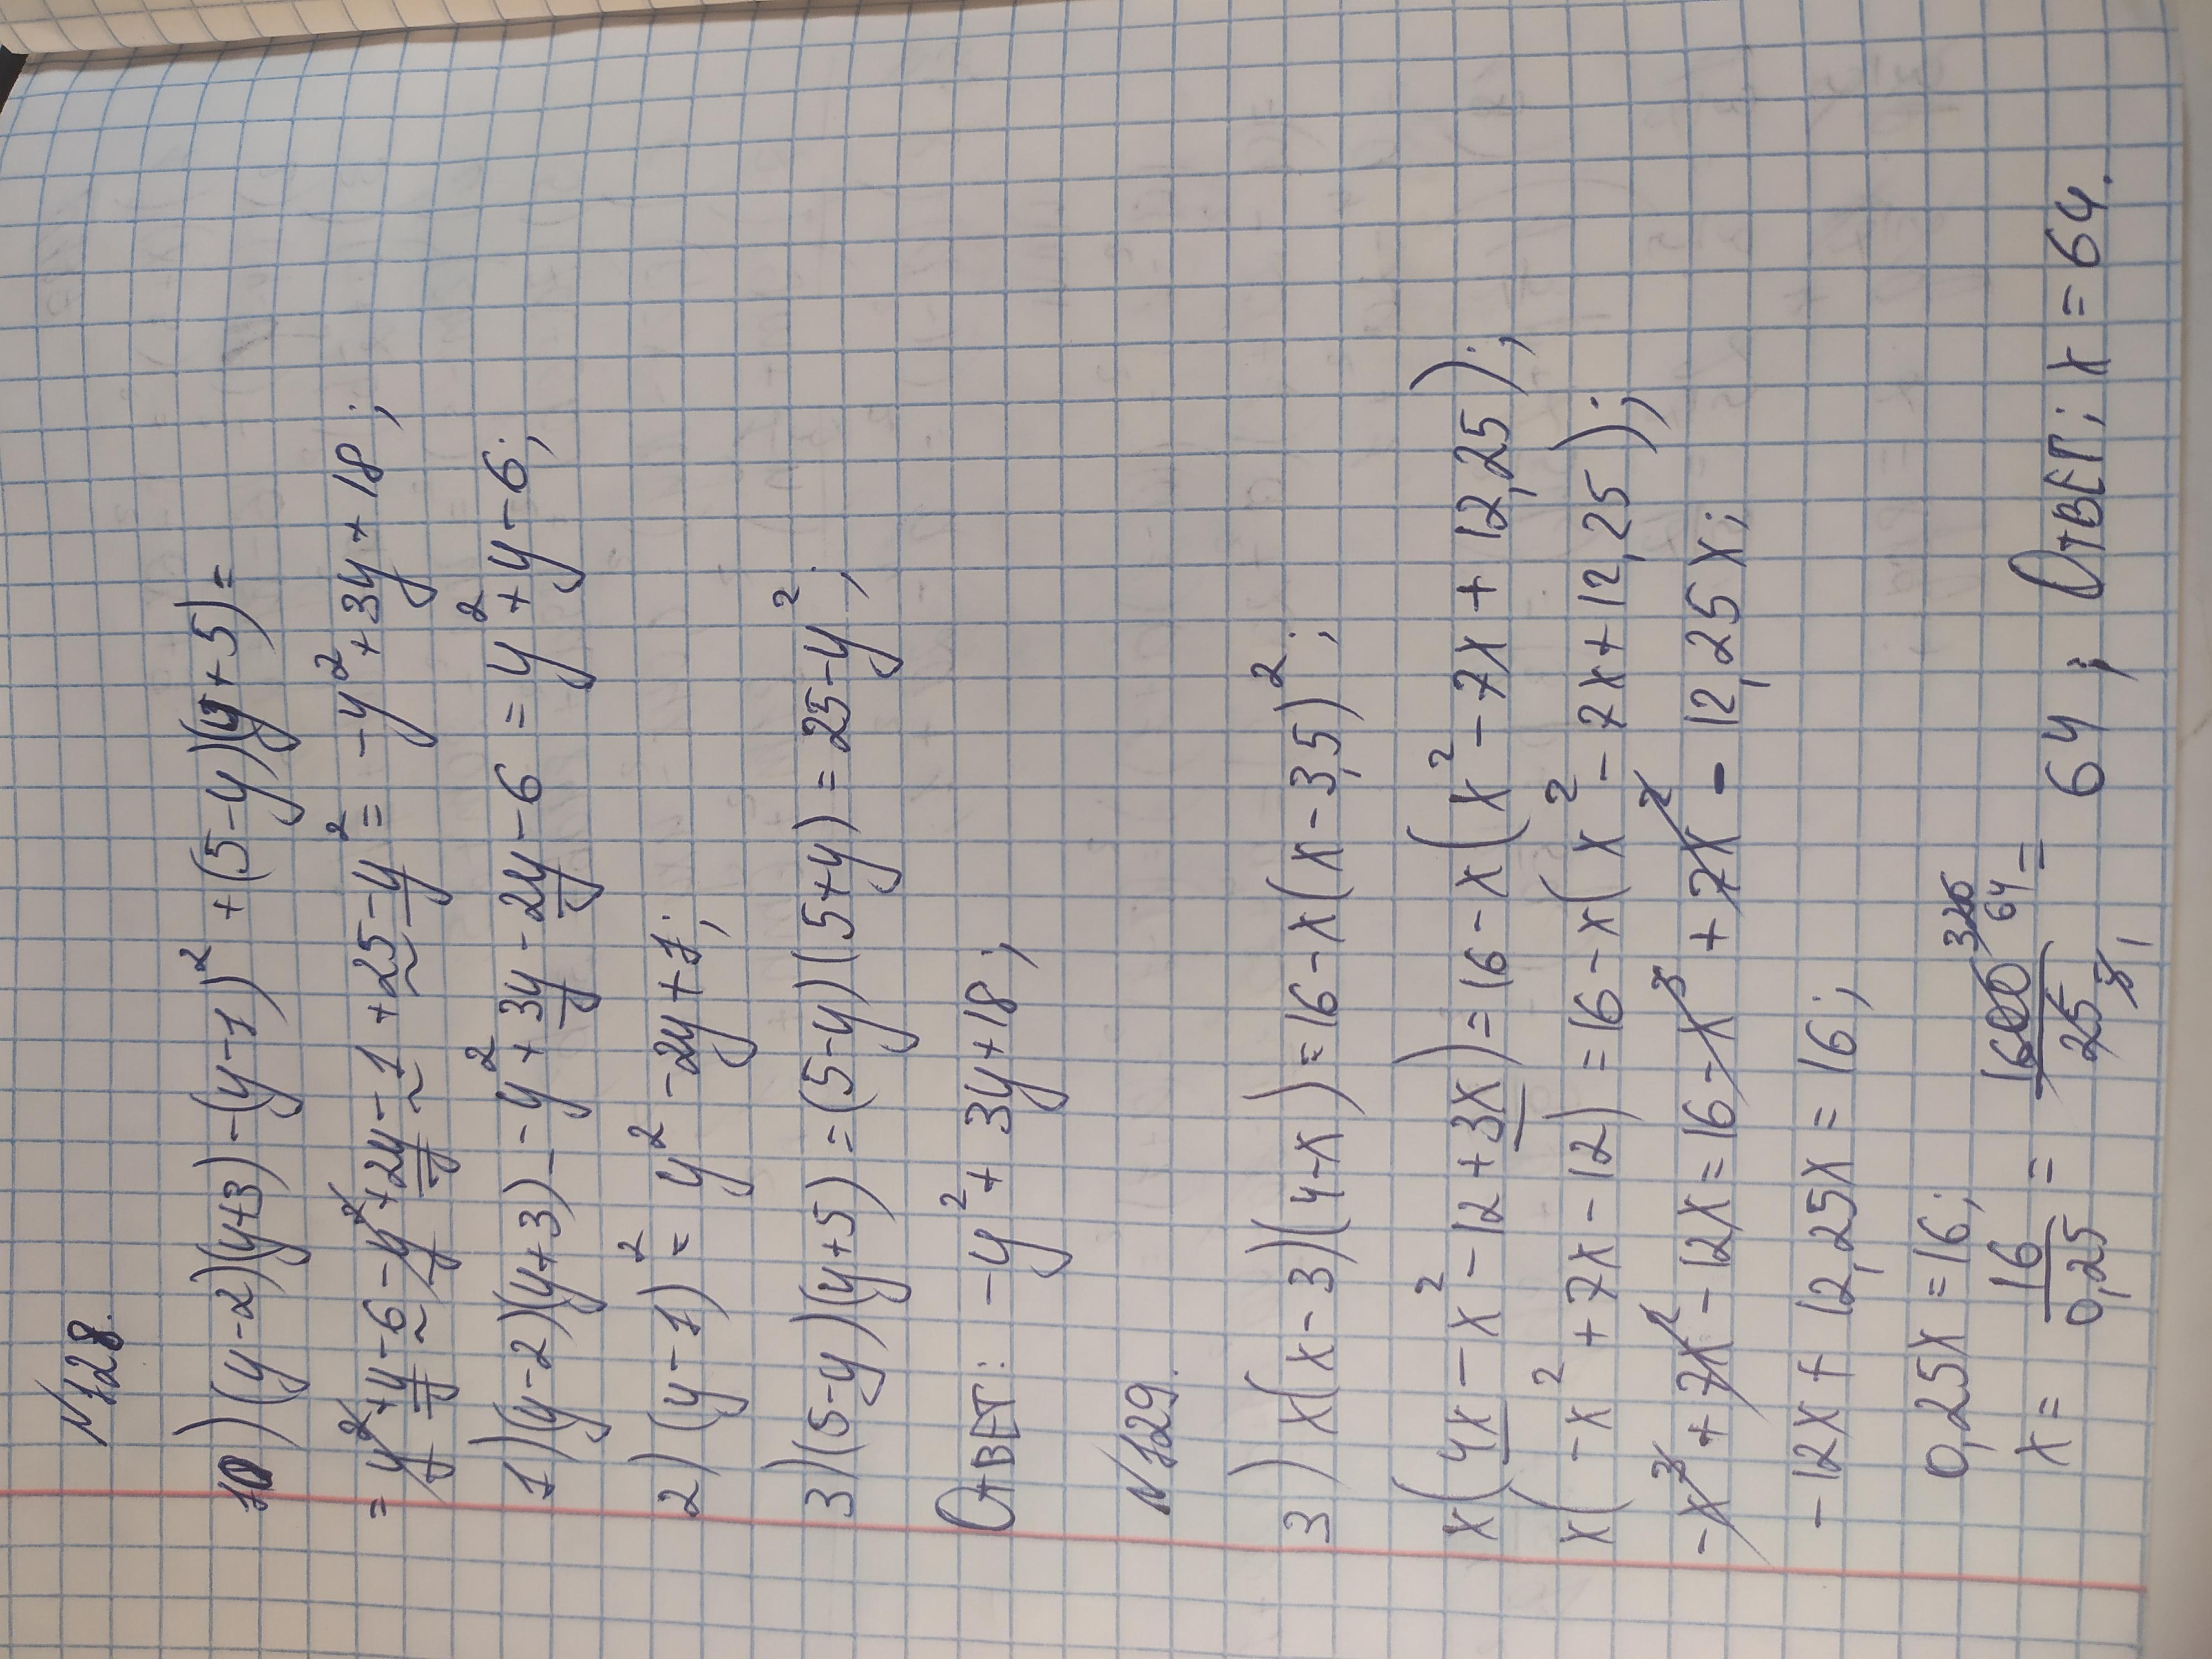 N128.
10) (y-2)(y+3)-(y-1)²+(5-y)(y+5)=
= y²+y-6-y²+2y-1+25-y² = -y²+3y+18;
1)(y-2)(y+3)=-y²+3y-2y-6=y²+y-6;
2)(y-1)²=y²-2y+1;
3)(5-y)(y+5)=(5-y)(5+y)=25-y²;
Ответ: -y²+3y+18;
N129.
3) x(x-3)(4-x)=16-x(x-3,5)²;
x(4x-x²-12+3x)=16-x(x²-7x+12,25);
x(-x²+7x-12)=16-x(x²-7x+12,25);
-x³+7x²-12x=16-x³+7x²-12,25x;
-12x+12,25x=16;
0,25x=16;
x=16/0,25=1600 320 64/25 5 1=64; Ответ; x=64.